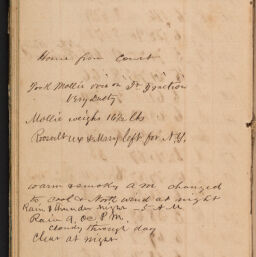 Home from Court
Took Mollie over on
Very Dusty
Mollie weighs lbs
& Mary left for N.Y.
warm & smoky A.M. changed
to cool & North wind at night
Rain & thunder night A.M
Rain 9, P.M.
cloudy through day
Clear at night